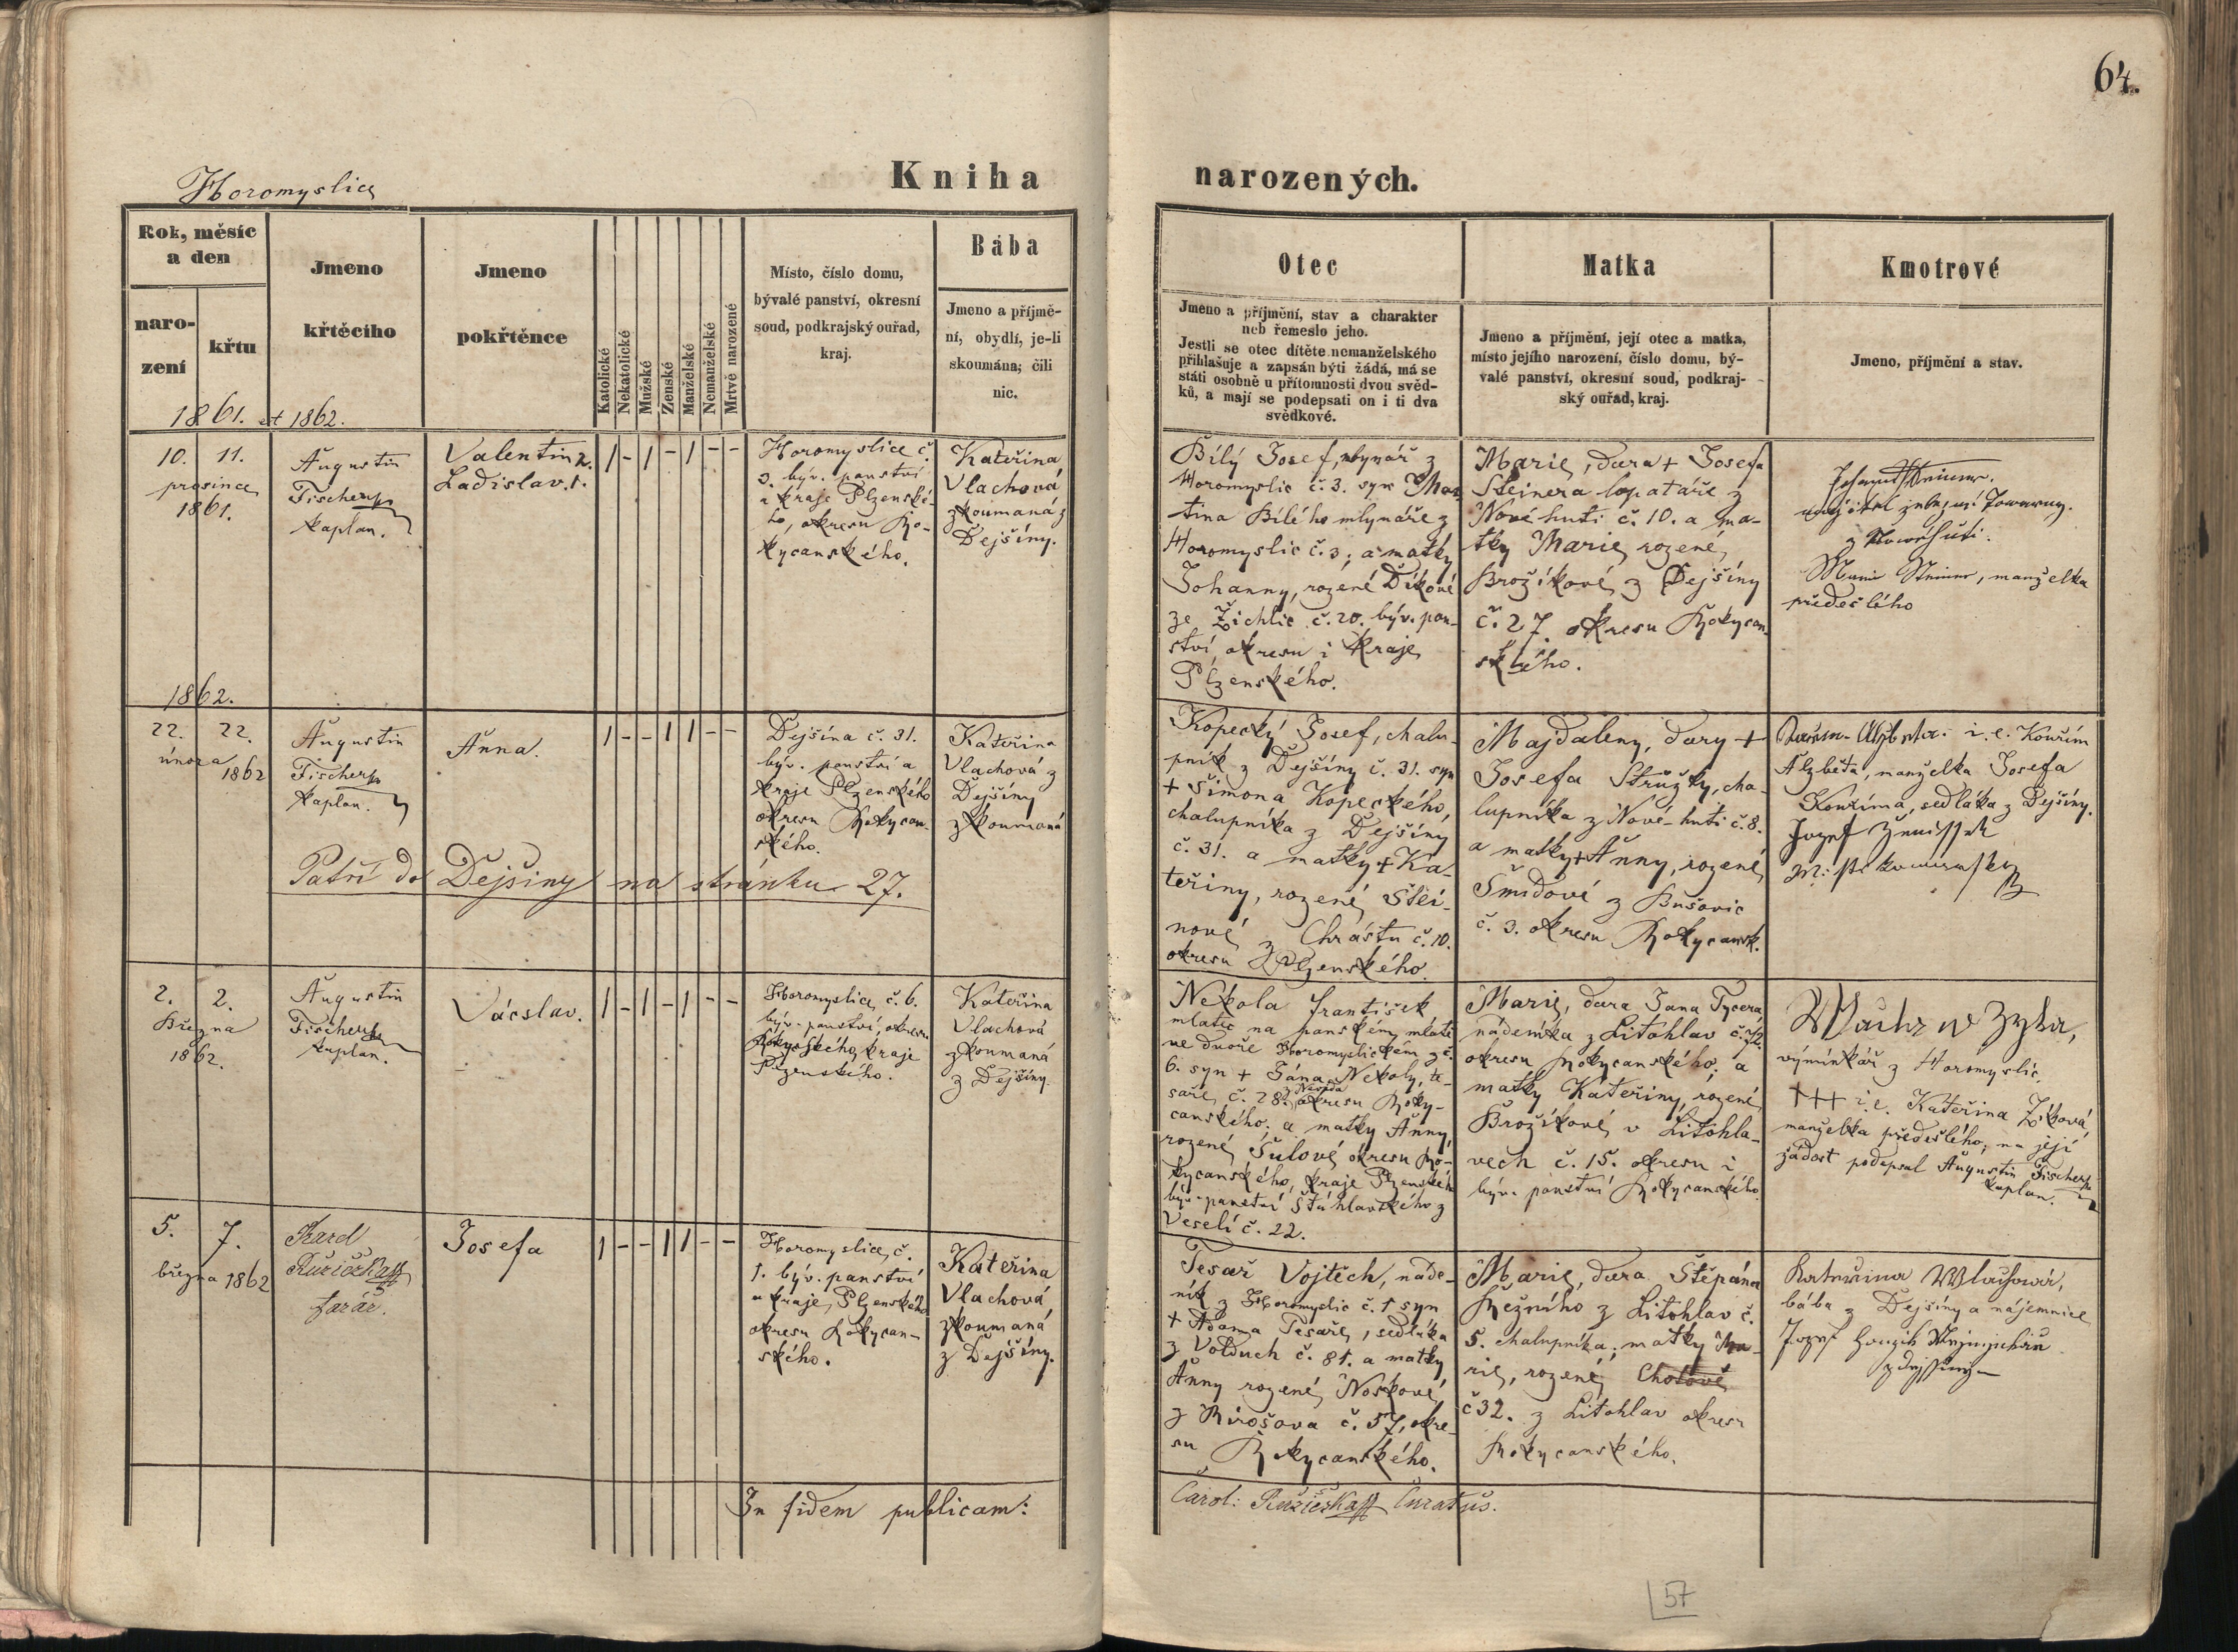 64.
Horomyslice
Kniha
narozených.
Rok, měsíc
a den
naro-
zení
křtu
Jmeno
křtěcího
Jmeno
pokřtěnce
Katolické
Nekatolické
Mužské
Ženské
Manželské
Nemanželské
Mrtvě narozené
Místo, číslo domu,
bývalé panství, okresní
soud, podkrajský ouřad,
kraj.
Bába
Jmeno a příjmě-
ní, obydlí, je-li
skoumána; čili
nic.
Otec
Jmeno a příjmění, stav a charakter
neb řemeslo jeho.
Jestli se otec dítěte nemanželského
přihlašuje a zapsán býti žádá, má se
státi osobně u přítomnosti dvou svěd-
ků, a mají se podepsati on i ti dva
svědkové.
Matka
Jmeno a příjmění, její otec a matka,
místo jejího narození, číslo domu, bý-
valé panství, okresní soud, podkraj-
ský ouřad, kraj.
Kmotrové
Jmeno, příjmění a stav.
1861. et 1862.
10. 11.
prosince
1861.
Augustin
Fischer
kaplan.
Valentin 2.
Ladislav. 1.
1 - 1 - 1 - -
Horomyslice č.
3. býv. panství
a kraje Plzenské-
ho, okresu Ro-
kycanského.
Kateřina
Vlachová
zkoumaná z
Dejšíny.
Bílý Josef, mlynář z
Horomyslic č. 3. syn Mar-
tina Bílého mlynáře z
Horomyslic č. 3; a matky
Johanny, rozené Díkové
ze Žichlic č. 20. býv. pan-
ství, okresu i kraje
Plzenského.
Marie, dcra + Josefa
Steinera lopatáře z
Nové huti č. 10. a ma-
tky Marie, rozené
Brožíkové z Dejšíny
č. 27. okresu Rokycan-
ského.
z Nowé huti.
manželka
předešlého
1862.
22. 22.
února 1862
Augustin
Fischer
kaplan.
Anna.
1 - - 1 1 - -
Dejšína č. 31.
býv. panství a
kraje Plzenského
okresu Rokycan-
ského.
Kateřina
Vlachová z
Dejšíny
zkoumaná
Patří do Dejšiny na stránku 27.
Kopecký Josef, chalu-
pník z Dejšíny č. 31. syn
+ Šimona Kopeckého,
chalupníka z Dejšíny
č. 31. a matky + Ka-
teřiny, rozené Štei-
nové z Chrástu č. 10.
okresu Plzenského.
Majdaleny, dcry +
Josefa Stružky, cha-
lupníka z Nové-huti č. 8.
a matky + Anny, rozené
Šmidové z Bušovic
č. 3. okresu Rokycansk.
i. e. Kouřím
Alžběta, manželka Josefa
Kouříma, sedláka z Dejšíny.
2. 2.
Března
1862.
Augustin
Fischer
kaplan.
Vácslav.
1 - 1 - 1 - -
Horomyslice, č. 6.
býv. panství, okresu
Rokycského, kraje
Plzenského.
Kateřina
Vlachová
zkoumaná
z Dejšíny.
Nekola František
mlatec na panském mlatě
ve dvoře Horomyslickém z č.
6. syn + Jána Nekoly, te-
saře, č. 28. okresu Roky-
canského; a matky Anny,
rozené Šulové okresu Ro-
kycanského, kraje Plzenského
býv. panství Stáhlavského z
Veselí č. 22.
Marie, dcra Jana Tycera
nádeníka z Litohlav č.
okresu Rokycanského; a
matky Kateřiny, rozené
Brožíkové v Litohla-
vech č. 15. okresu i
býv. panství Rokycanského.
výmínkář z Horomyslic.
+++ i. e. Kateřina Zíková,
manželka předešlého; na její
žádost podepsal Augustin Fischer
kaplan.
5. 7.
března 1862
Karel
Růžička
farář.
Josefa
1 - - 1 1 - -
Horomyslice, č.
1. býv. panství
a kraje Plzenského
okresu Rokycan-
ského.
Kateřina
Vlachová
zkoumaná
z Dejšíny.
Tesař Vojtěch, náde-
ník z Horomyslic č. 1 syn
+ Adama Tesaře, sedláka
z Volduch č. 81. a matky
Anny rozené Noskové,
z Mirošova č. 57, okre-
su Rokycanského.
Marie, dcra Štěpána
Řežního z Litohlav č.
5. chalupníka; matky Ma-
rie, rozené Cholové
č 32. z Litohlav okresu
Rokycanského.
Kateřina Wlachowá,
bába z Dejšíny a nájemnice
In fidem publicam:
Carol: Růžička Curatus.
57